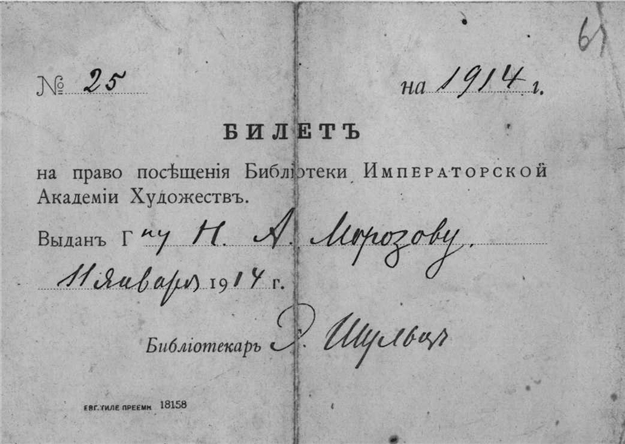 61
№ 25 на 1914 г.
БИЛЕТЪ
на право посѣщенія Библіотеки Императорской
Академіи Художествъ.
Выданъ Гну Н. А. Морозову.
11 Января 1914 г.
Библіотекарь Э. Шульцъ
ЕВГ. ТИЛЕ ПРЕЕМН. 18158